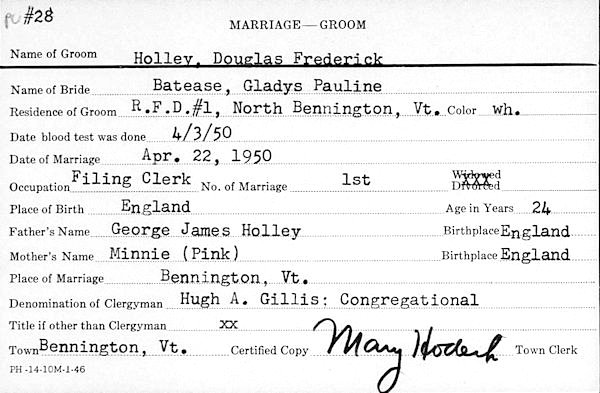 #28
MARRIAGE—GROOM
Name of Groom Holley, Douglas Frederick
Name of Bride Batease, Gladys Pauline
Residence of Groom R.F.D.#1, North Bennington, Vt. Color wh.
Date blood test was done 4/3/50
Date of Marriage Apr. 22, 1950
Occupation Filing Clerk No. of Marriage 1st Widowed
Divorced xxx
Place of Birth England Age in Years 24
Father's Name George James Holley Birthplace England
Mother's Name Minnie (Pink) Birthplace England
Place of Marriage Bennington, Vt.
Denomination of Clergyman Hugh A. Gillis: Congregational
Title if other than Clergyman xx
Town Bennington, Vt. Certified Copy Mary Hoderk Town Clerk
PH-14-10M-1-46